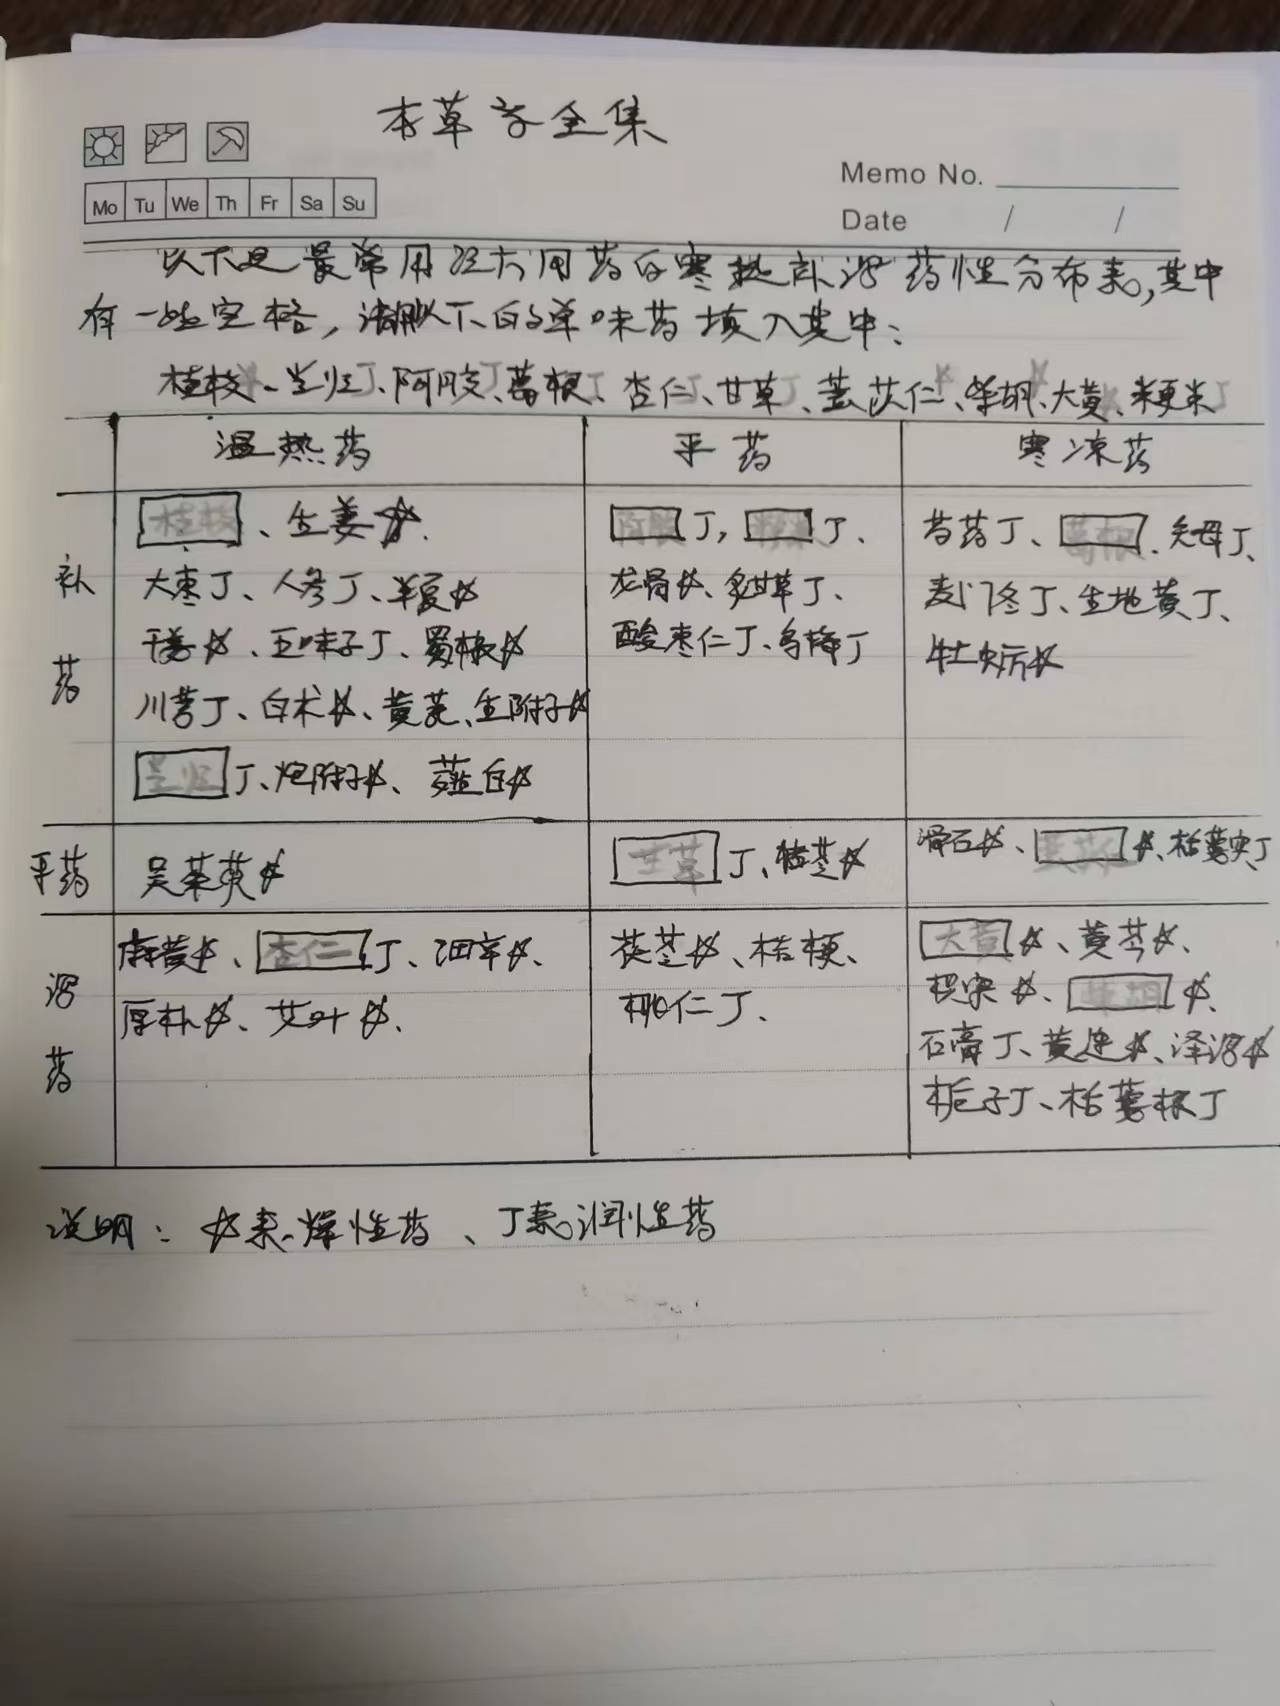 本草方全集
Memo No.
Mo Tu We Th Fr Sa Su
Date / /
以下是最常用经方用药的寒热补泻药性分布表,其中
有一些空格,请将以下的单味药填入其中:
桂枝、当归丁、阿胶丁、葛根丁、杏仁、甘草丁、薏苡仁、柴胡、大黄、粳米丁
温热药 平药 寒凉药
补药
桂枝、生姜☆.
大枣丁、人参丁、半夏☆
干姜☆、五味子丁、蜀椒☆
川芎丁、白术☆、黄芪、生附子☆
当归丁、炮附子☆、薤白☆
阿胶丁,粳米丁、
龙骨☆、炙甘草丁、
酸枣仁丁、乌梅丁
芍药丁、葛根、知母丁、
麦门冬丁、生地黄丁、
牡蛎☆
平药
吴茱萸☆
甘草丁、猪苓☆
滑石☆、薏苡仁☆、栝蒌实丁
泻药
麻黄☆、杏仁丁、细辛☆、
厚朴☆、艾叶☆、
茯苓☆、桔梗、
桃仁丁、
大黄☆、黄芩☆、
枳实☆、柴胡☆、
石膏丁、黄连☆、泽泻☆
栀子丁、栝蒌根丁
说明:☆表燥性药、丁表润性药